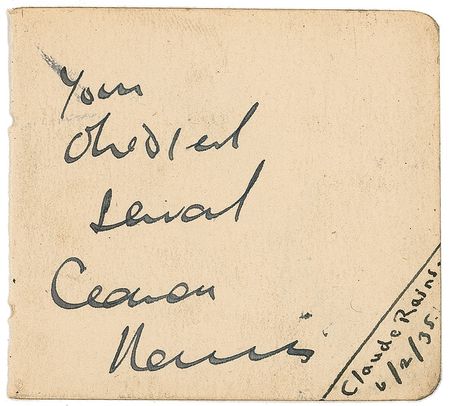 Your
Obedient
Servant
Claude
Rains
Claude Rains.
6/2/35.